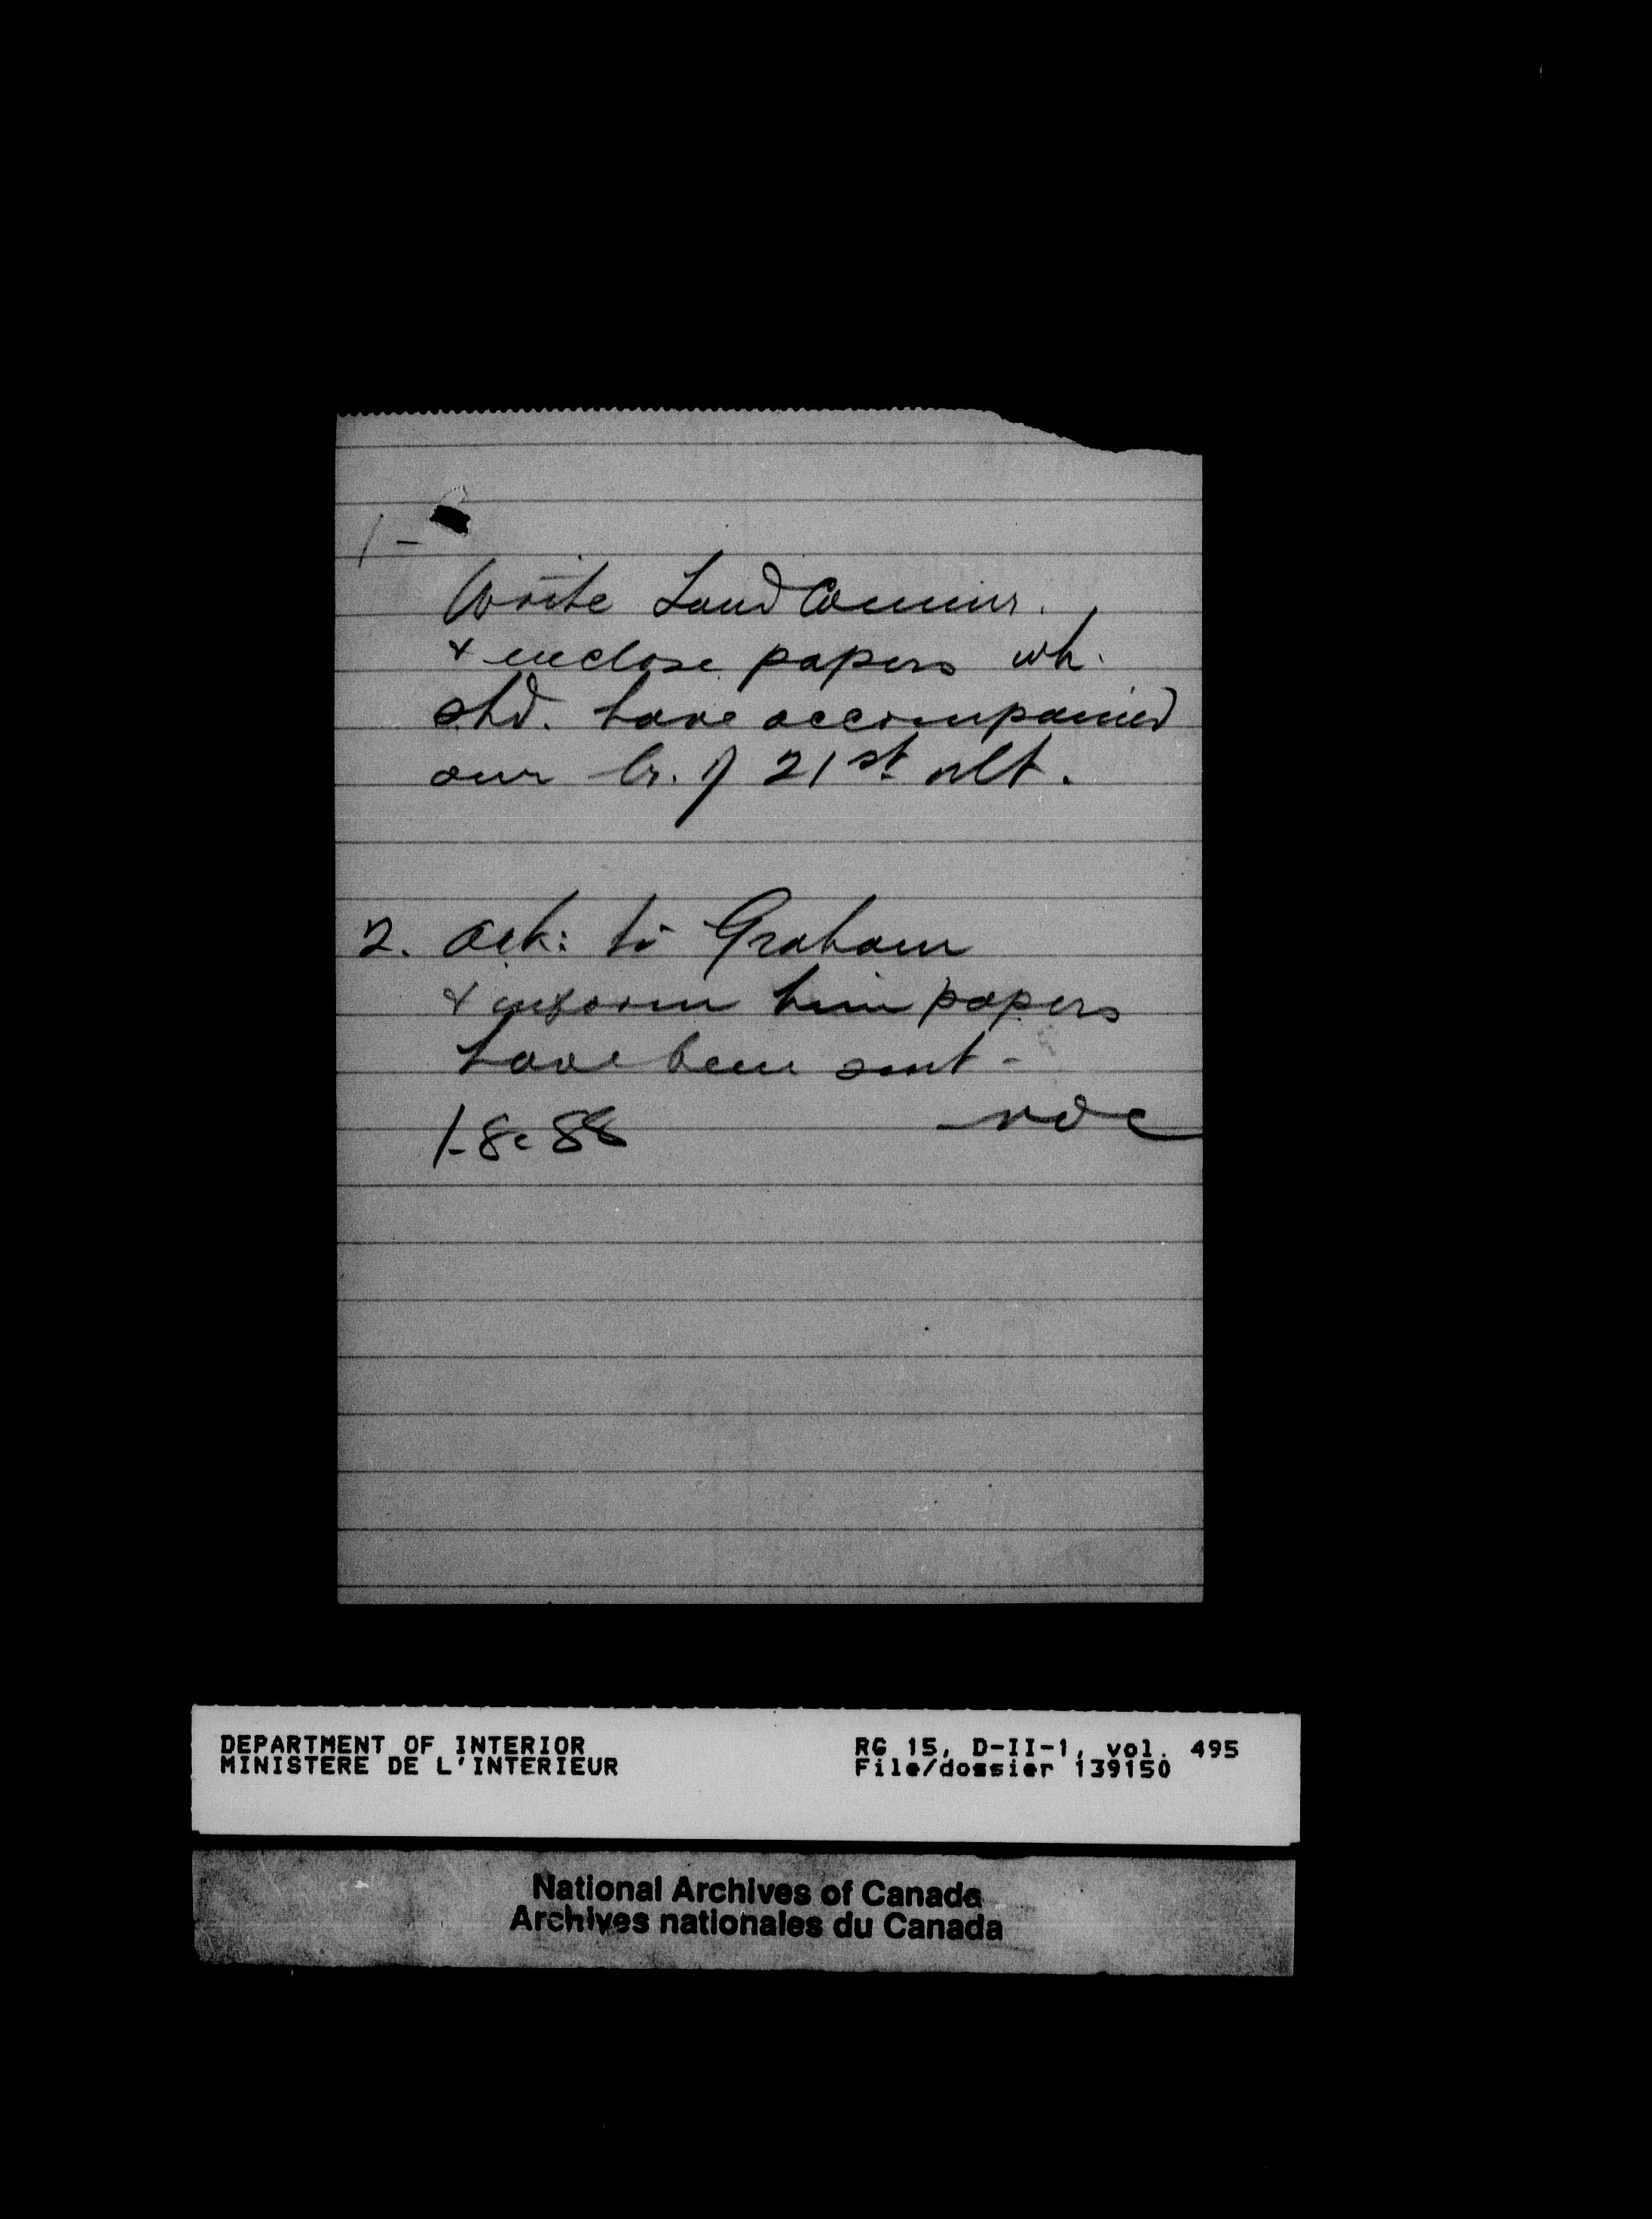 1 -
Write Land Commr.
& enclose papers wh.
shd. have accompanied
our lr. of 21st ult.
2. Ack: to Graham
& inform him papers
have been sent -
1-8-88
DEPARTMENT OF INTERIOR RG 15, D-II-1, vol. 495
MINISTERE DE L'INTERIEUR File/dossier 139150
National Archives of Canada
Archives nationales du Canada